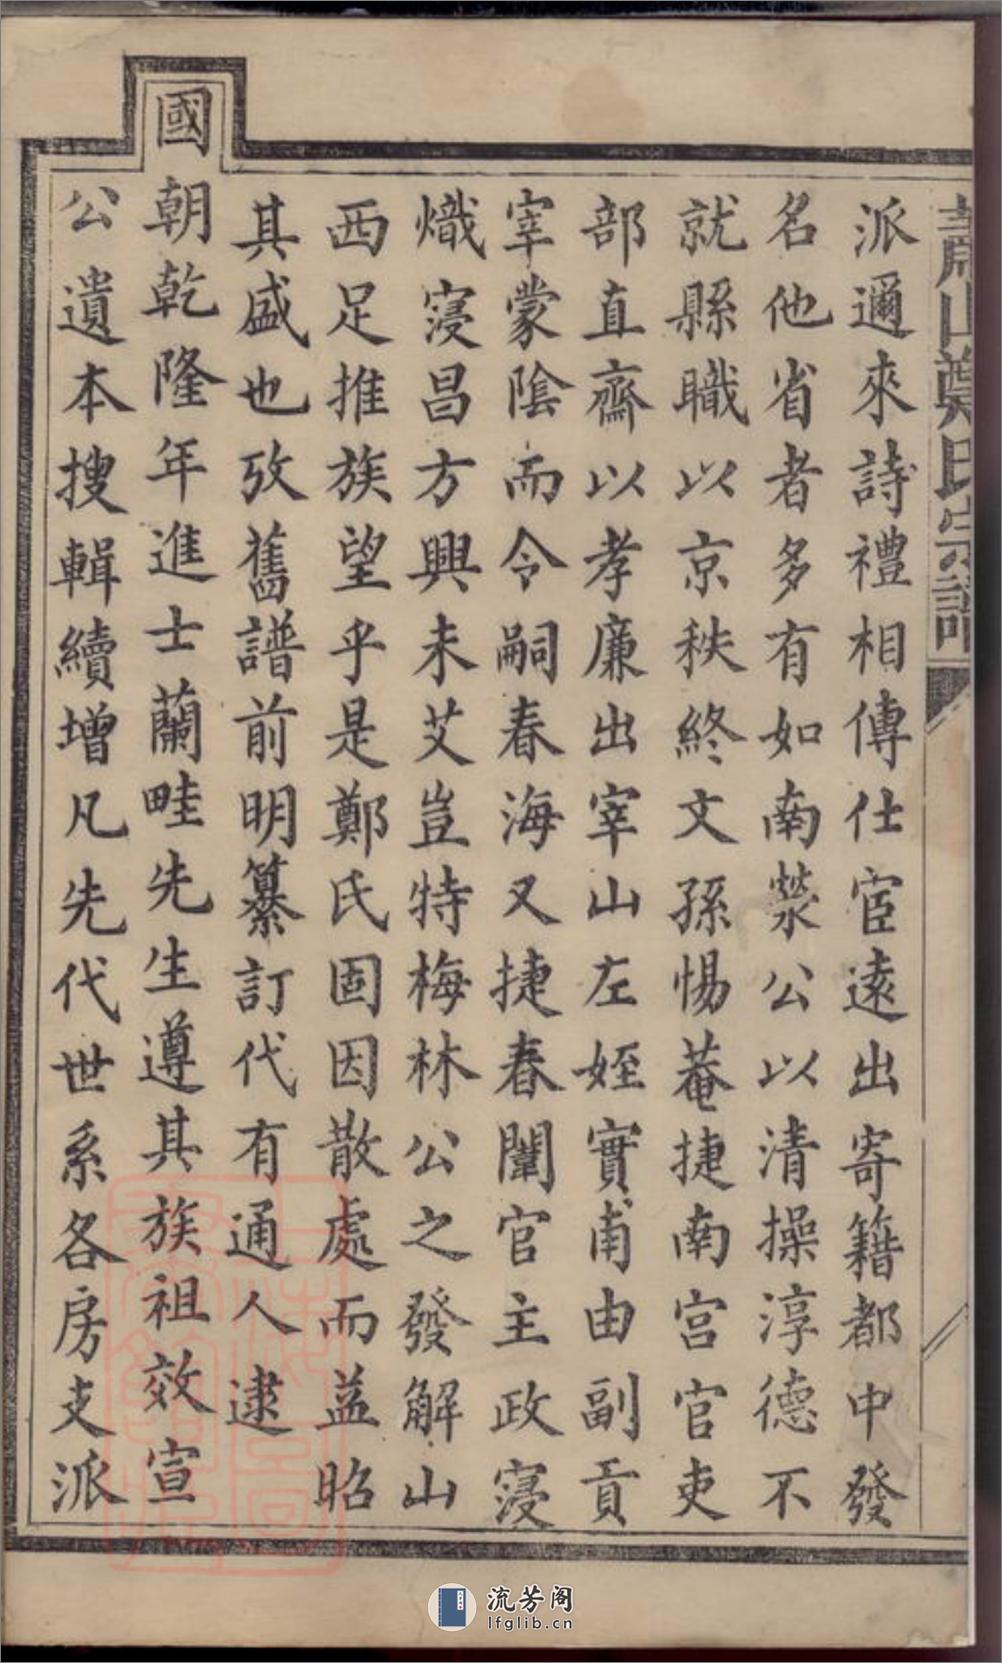 山鄭氏宗譜
派邇來詩禮相傳仕宦遠出寄籍都中發
名他省者多有如南滎公以清操淳德不
就縣職以京秩終文孫惕菴捷南宮官吏
部直齋以孝廉出宰山左姪實甫由副貢
宰蒙陰而令嗣春海又捷春闈官主政寖
熾寖昌方興未艾豈特梅林公之發解山
西足推族望乎是鄭氏固因散處而益昭
其盛也攷舊譜前明纂訂代有通人逮
國朝乾隆年進士蘭畦先生遵其族祖效宣
公遺本搜輯續增凡先代世系各房支派
流芳阁
lfglib.cn